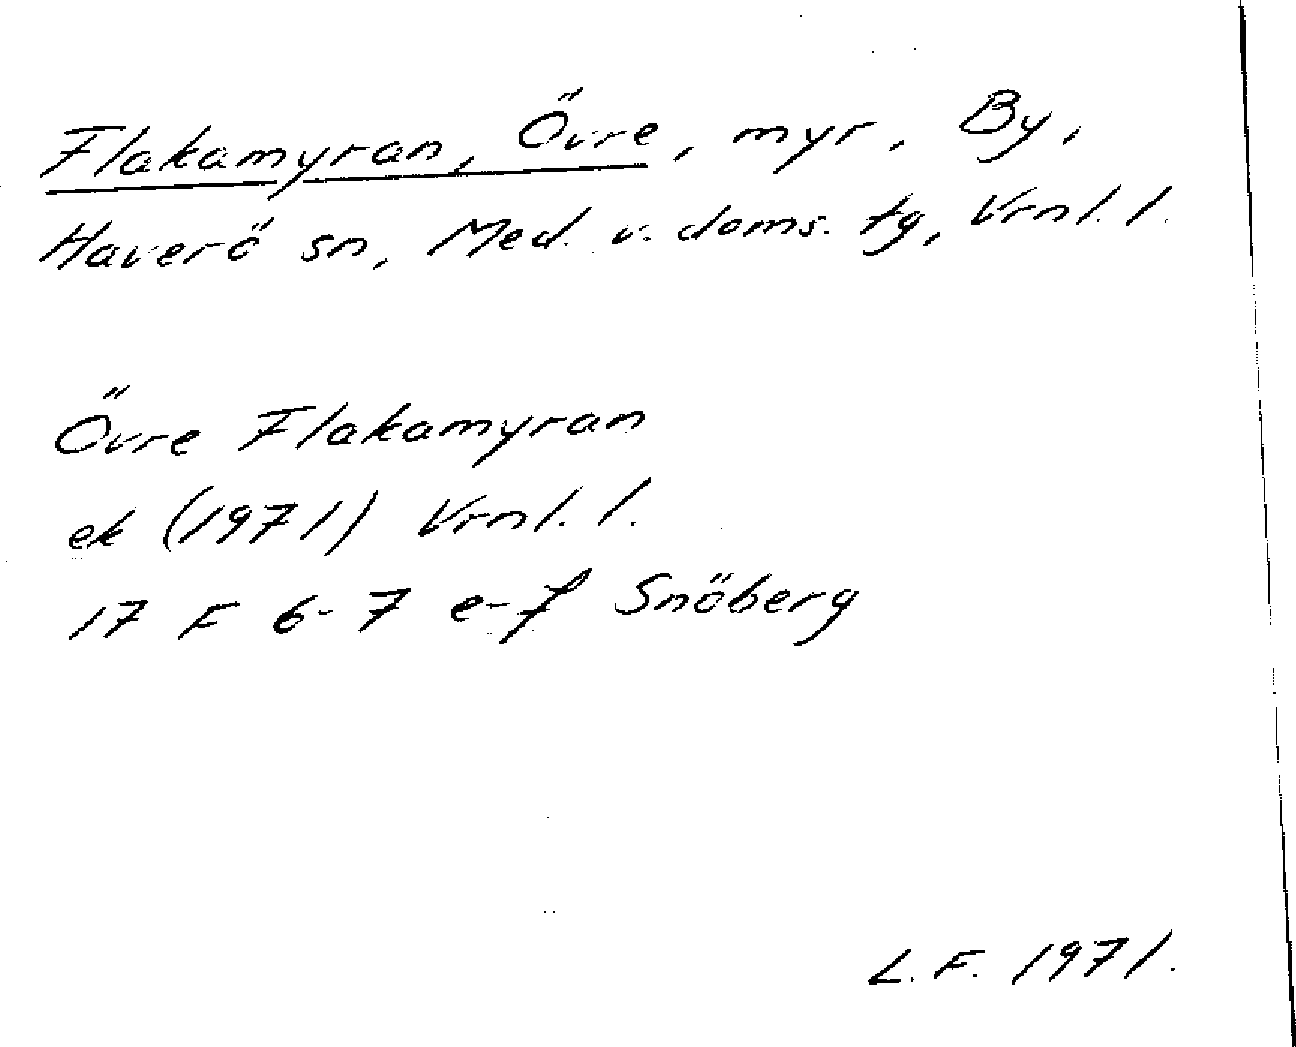 Flakamyran, Övre, myr, By,
Haverö sn, Med. v. doms. tg, Vrnl. l.
Övre Flakamyran
ek (1971) Vrnl. l.
17 F 6-7 e-f Snöberg
L. F. 1971.